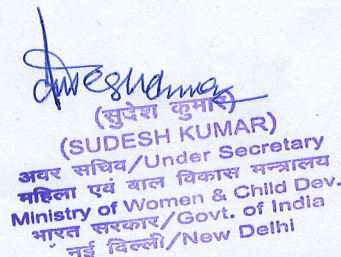 (सुदेश कुमार)
(SUDESH KUMAR)
अवर सचिव/Under Secretary
महिला एवं बाल विकास मन्त्रालय
Ministry of Women & Child Dev.
भारत सरकार/Govt. of India
नई दिल्ली/New Delhi